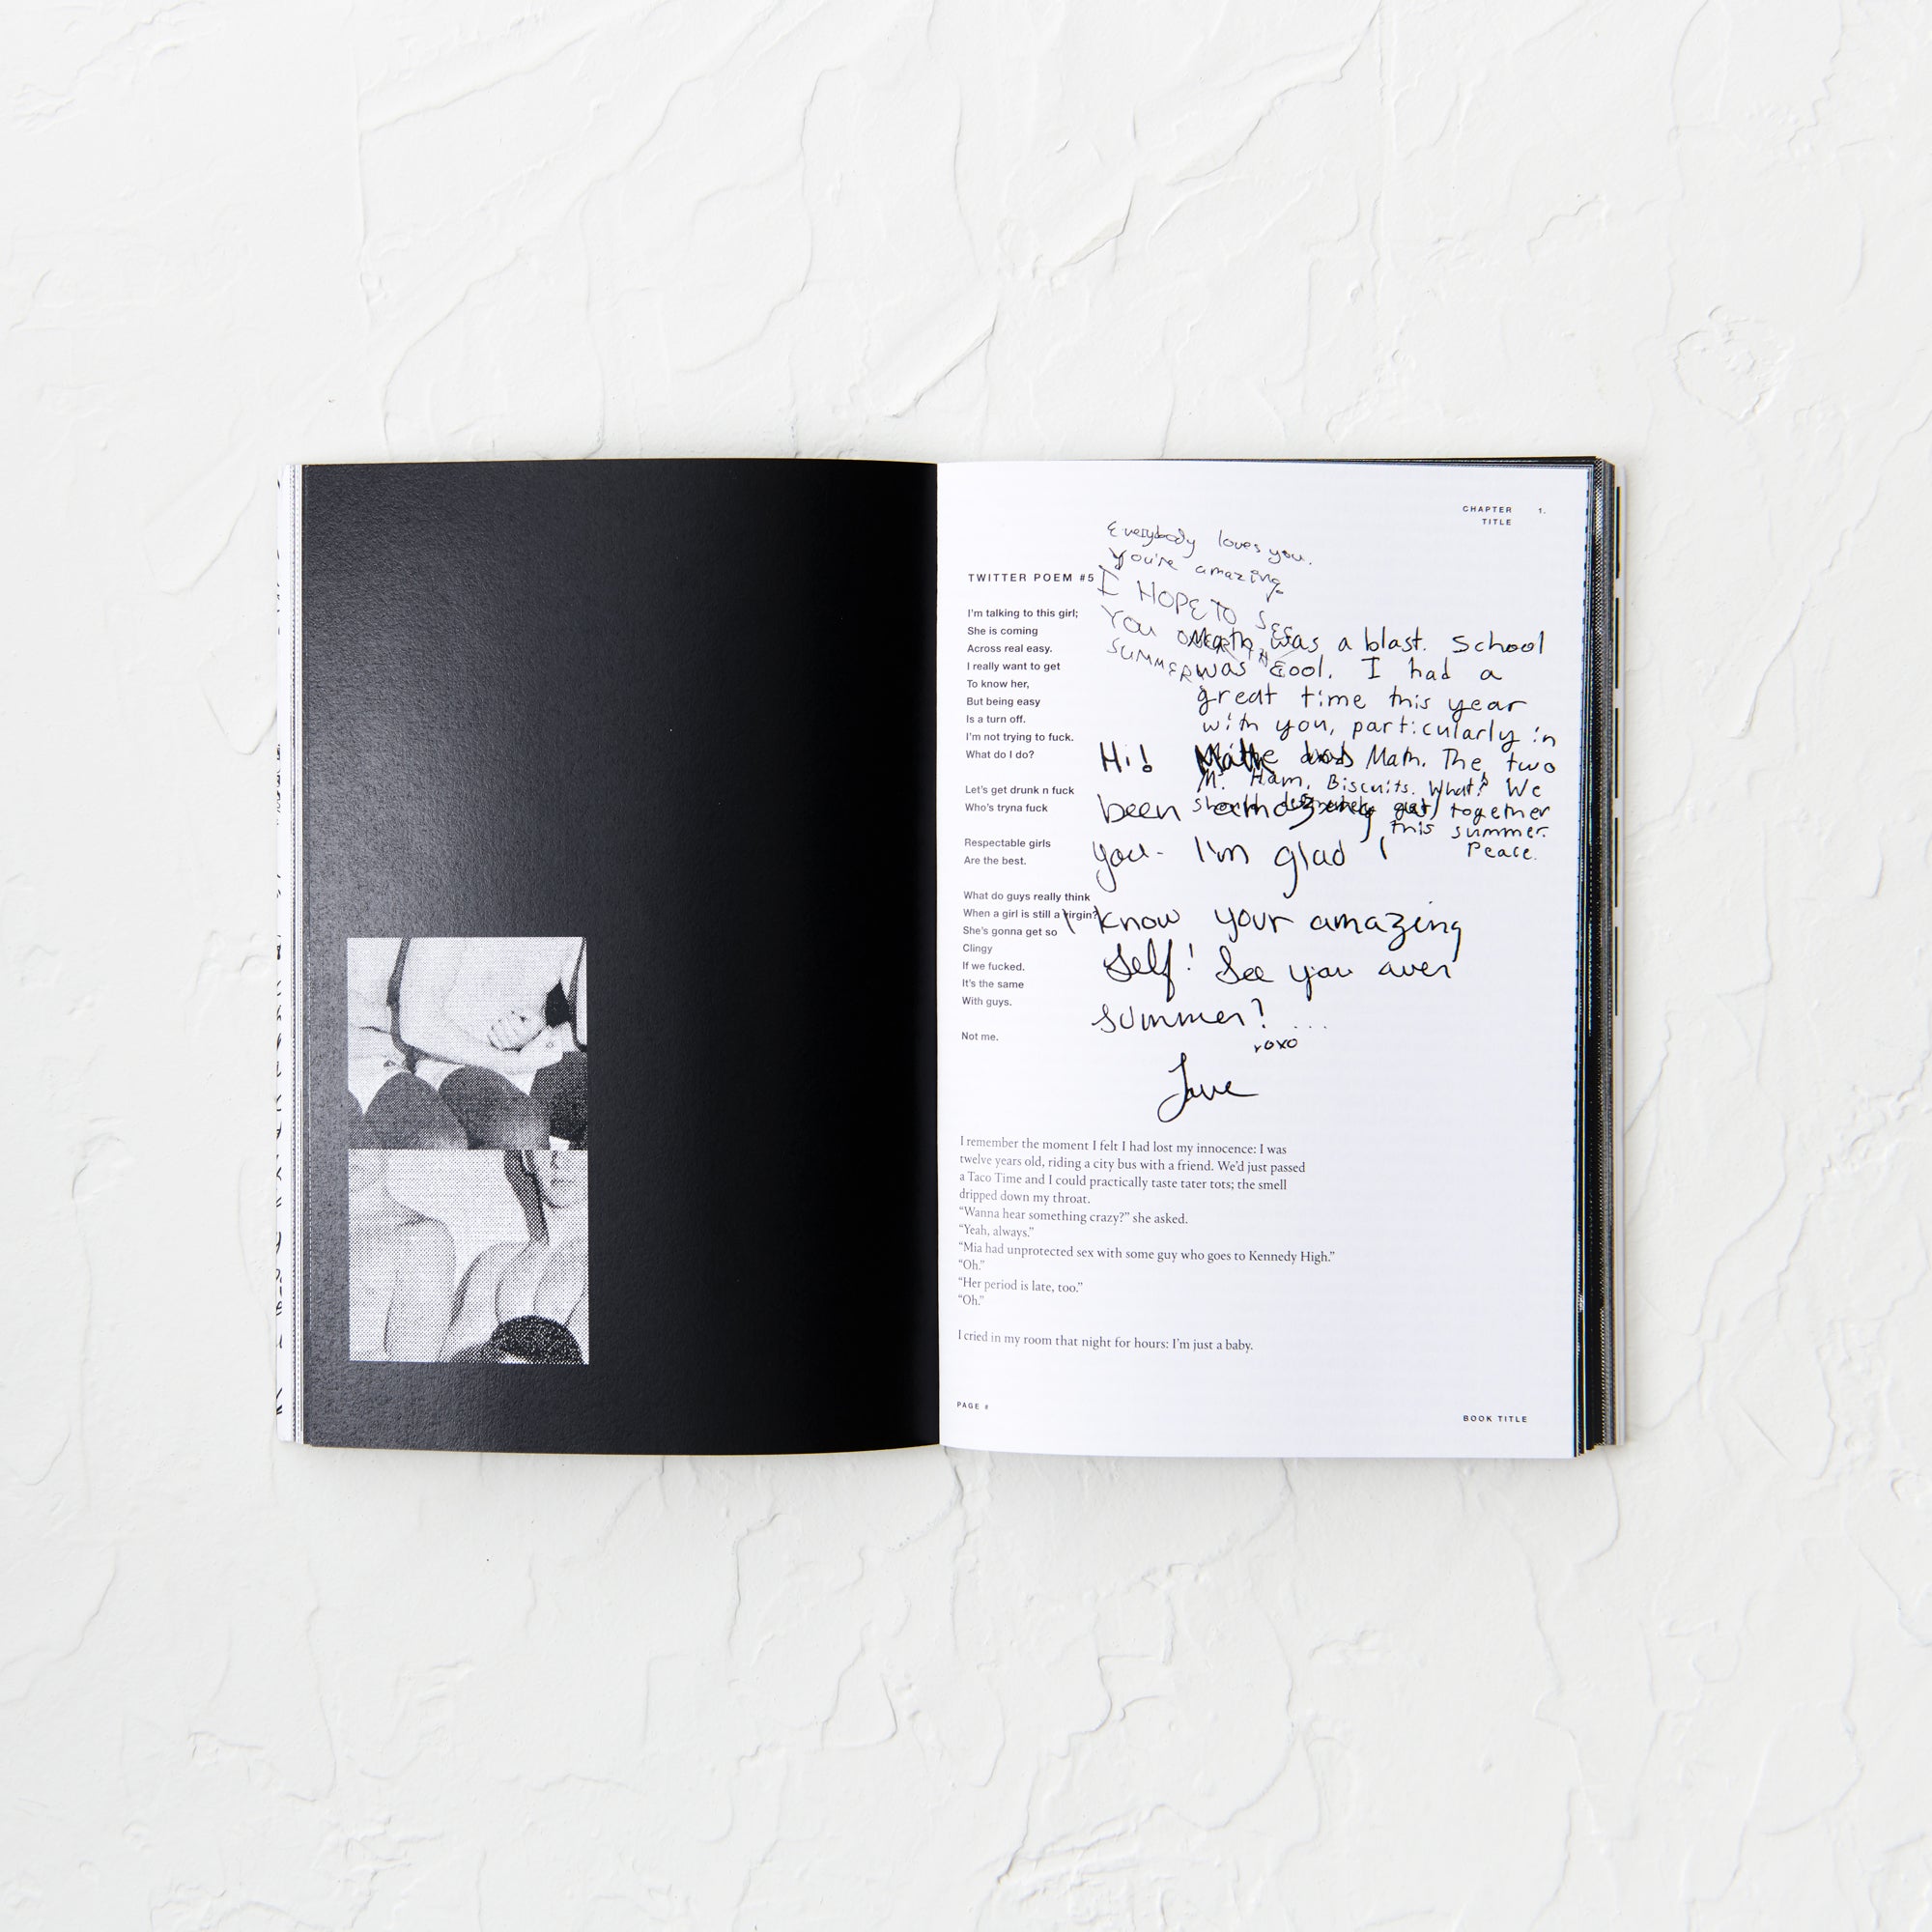 CHAPTER 1.
TITLE
Everybody loves you.
You're amazing
I HOPE TO SEE
YOU OVER THE
SUMMER
TWITTER POEM #5
I'm talking to this girl;
She is coming
Across real easy.
I really want to get
To know her,
But being easy
Is a turn off.
I'm not trying to fuck.
What do I do?
Let's get drunk n fuck
Who's tryna fuck
Respectable girls
Are the best.
What do guys really think
When a girl is still a virgin?
She's gonna get so
Clingy
If we fucked.
It's the same
With guys.
Not me.
Math was a blast. School
was cool. I had a
great time this year
with you, particularly in
Math. The two
M. Ham, Biscuits. What? We
should get together
this summer.
Peace.
Hi!
been amazing
you- I'm glad I
know your amazing
self! See you over
summer? ...
xoxo
I remember the moment I felt I had lost my innocence: I was
twelve years old, riding a city bus with a friend. We'd just passed
a Taco Time and I could practically taste tater tots; the smell
dripped down my throat.
“Wanna hear something crazy?” she asked.
“Yeah, always.”
“Mia had unprotected sex with some guy who goes to Kennedy High.”
“Oh.”
“Her period is late, too.”
“Oh.”
I cried in my room that night for hours: I'm just a baby.
PAGE #
BOOK TITLE